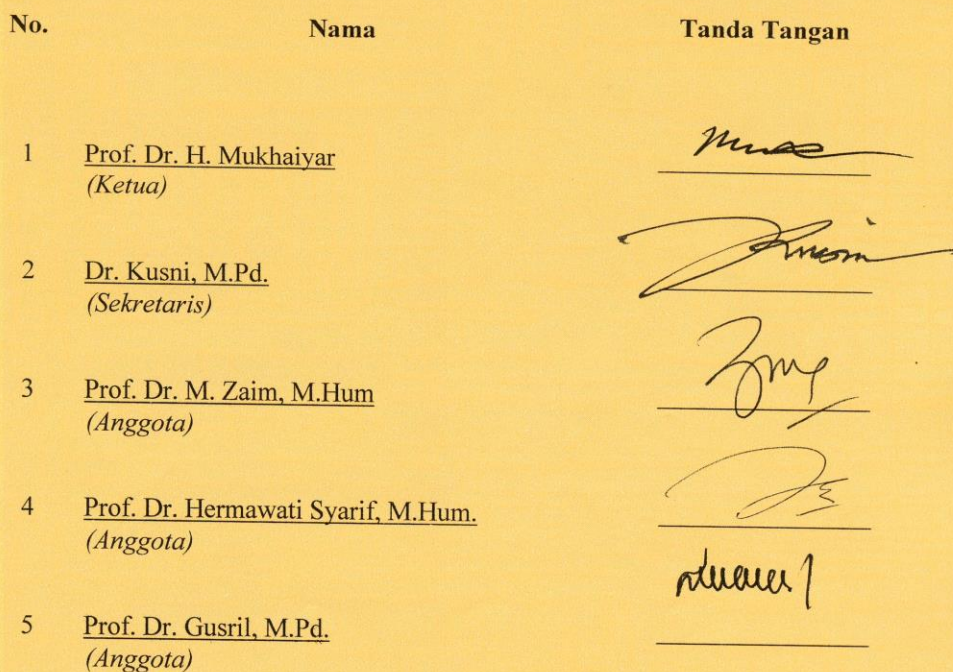 No. Nama Tanda Tangan
1 Prof. Dr. H. Mukhaiyar
(Ketua)
2 Dr. Kusni, M.Pd.
(Sekretaris)
3 Prof. Dr. M. Zaim, M.Hum
(Anggota)
4 Prof. Dr. Hermawati Syarif, M.Hum.
(Anggota)
5 Prof. Dr. Gusril, M.Pd.
(Anggota)